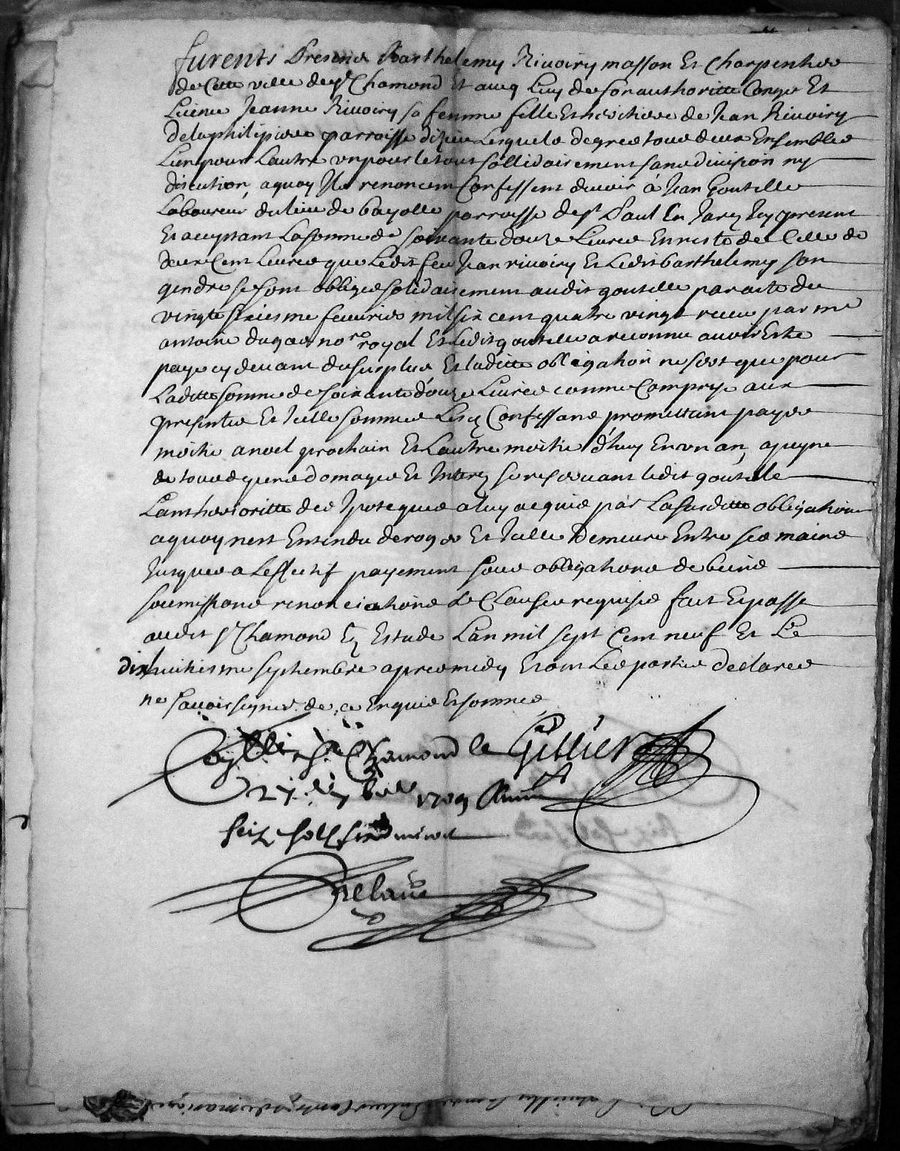 furents Presens Barthelemy Rivoiry masson Et Charpentier
de Cette ville de st Chamond Et avec Luy de son authoritte Conge Et
Licence Jeanne Rivoiry sa femme fille Et heritiere de Jean Rivoiry
de la parroisse Lesquels de gre tous deux Ensembles
L'un pour Lautre un pour le tout sollidairement sans division ny
discution, a quoy Ils renoncent Confessent devoir à Jean Goutelle
Laboureur du lieu de bayolle parroisse de st Paul En Jarez Icy present
Et acceptant La somme de soixante douze Livres En reste de Celle de
deux Cent Livres que Ledit feu Jean rivoiry Et Ledit barthelemy son
gendre se sont obliges solidairement audit goutelle par acte du
vingt sixiesme fevurier mil six cent quatre vingt receu par me
antoine dugas nore royal Et Ledit goutelle a reconnu avoir Este
paye cy devant du surplus Et laditte obligation ne s'est que pour
Laditte somme de soixante douze Livres comme Comprise aux
presentes Et Icelle somme Les Confessans promettent payer
moitie a noel prochain Et L'autre moitie d'huy En un an, a peyne
de tous despens domages Et Interez se reservant ledit goutelle
L'antherioritte des Ipoteques a luy acquise par La susditte obligation
a quoy n'est Entendu deroger Et Icelle Demeure Entre ses mains
Jusques a Leffectif payement sous obligations de biens
soumissions renonciations Et Clauses requises fait Et passe
audit st Chamond Es Estude L'an mil sept Cent neuf Et Le
dixhuitiesme septembre apres midy Et ont Les parties declarees
ne scavoir signer de ce Enquis Et sommes
Collé a st Chamond le Gillier
27 7bre 1709
seiz solz
Delaue